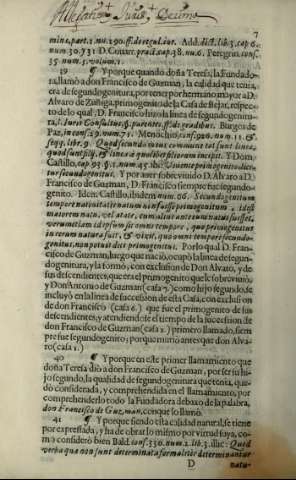 7
mine, part. 1. nu. 290. ff. de regul. iur. Add. dict. lib. 3. cap. 6.
num. 30. 731 D. Couarr. pract. cap. 38. nu. 6. Peregrin. conf.
35. num. 5. volum. 1.
39 ¶ Y porque quando doña Teresa, la Fundado-
ra, llamò a don Francisco de Guzman, la calidad que tenia,
era de segundogenitura, por tener por hermano mayor a D.
Alvaro de Zuñiga, primogenito de la Casa de Bejar, respec-
to de lo qual, D. Francisco hizo la linea de segundogenitu-
ra, l. Iure Consultus, §. parentes, ff. de gradibus. Burgos de
Paz, in conf. 29. num. 71. Menochio, conf. 926. num. 11. &
seqq. libr. 9. Quod secundo nunc comunitat sunt linea,
quod sunt filij, & linea a quolibet filiorum incepit. Y Dom
Castillo, cap. 93. §. 1. num. 45. ibi: Viuente primogenito dici-
tur secundogenitus. Y por aver sobrevivido D. Alvaro a D.
Francisco de Guzman, D. Francisco siempre fue segundo-
genito. Idem Castillo, ibidem num. 06. Secundogenitum
tempore nativitatis natum non fuisse primogenitum, id est
maiorem natu, vel ætate, cum alius ante eum natus fuisset,
verumetiam id ipsum sit omni tempore, quo primogenitus
in rerum natura sit, & vivit, quo omni tempore secundo-
genitus, non potuit dici primogenitus. Por lo qual D. Fran-
cisco de Guzman, luego que naciò, ocupò la linea de segun-
dogenitura, y la formò, con exclusion de Don Alvaro, y de
sus descendientes, que era el primogenito que le sobrevivio,
y Don Antonio de Guzman (casa 7.) como hijo segundo, se
incluyò en la linea de succession de esta Casa, con exclusion
de don Francisco (casa 6.) que fue el primogenito de sus
descendientes, y atendiendo al tiempo de la succession de
don Francisco de Guzman (casa 2.) primero llamado, siem
pre fue segundogenito; porque muriò antes que don Alva-
ro (casa 1.)
40 ¶ Y porque en este primer llamamiento que
doña Teresa diò a don Francisco de Guzman, por ser su hi-
jo segundo, la qualidad de segundogenitura que tenia, que-
dò considerada, y comprehendida en el llamamiento, por
comprehenderlo todo la Fundadora debaxo de la palabra,
don Francisco de Guzman, con que lo llamò.
41 ¶ Y porque siendo esta calidad natural, se tiene
por expressada, y ha de obrar lo mismo por virtud suya, co-
mo considerò bien Bald. conf. 330. num. 2. lib. 3. illic: Quod
verba quæ non sunt determinata formaliter determinantur
D natu-